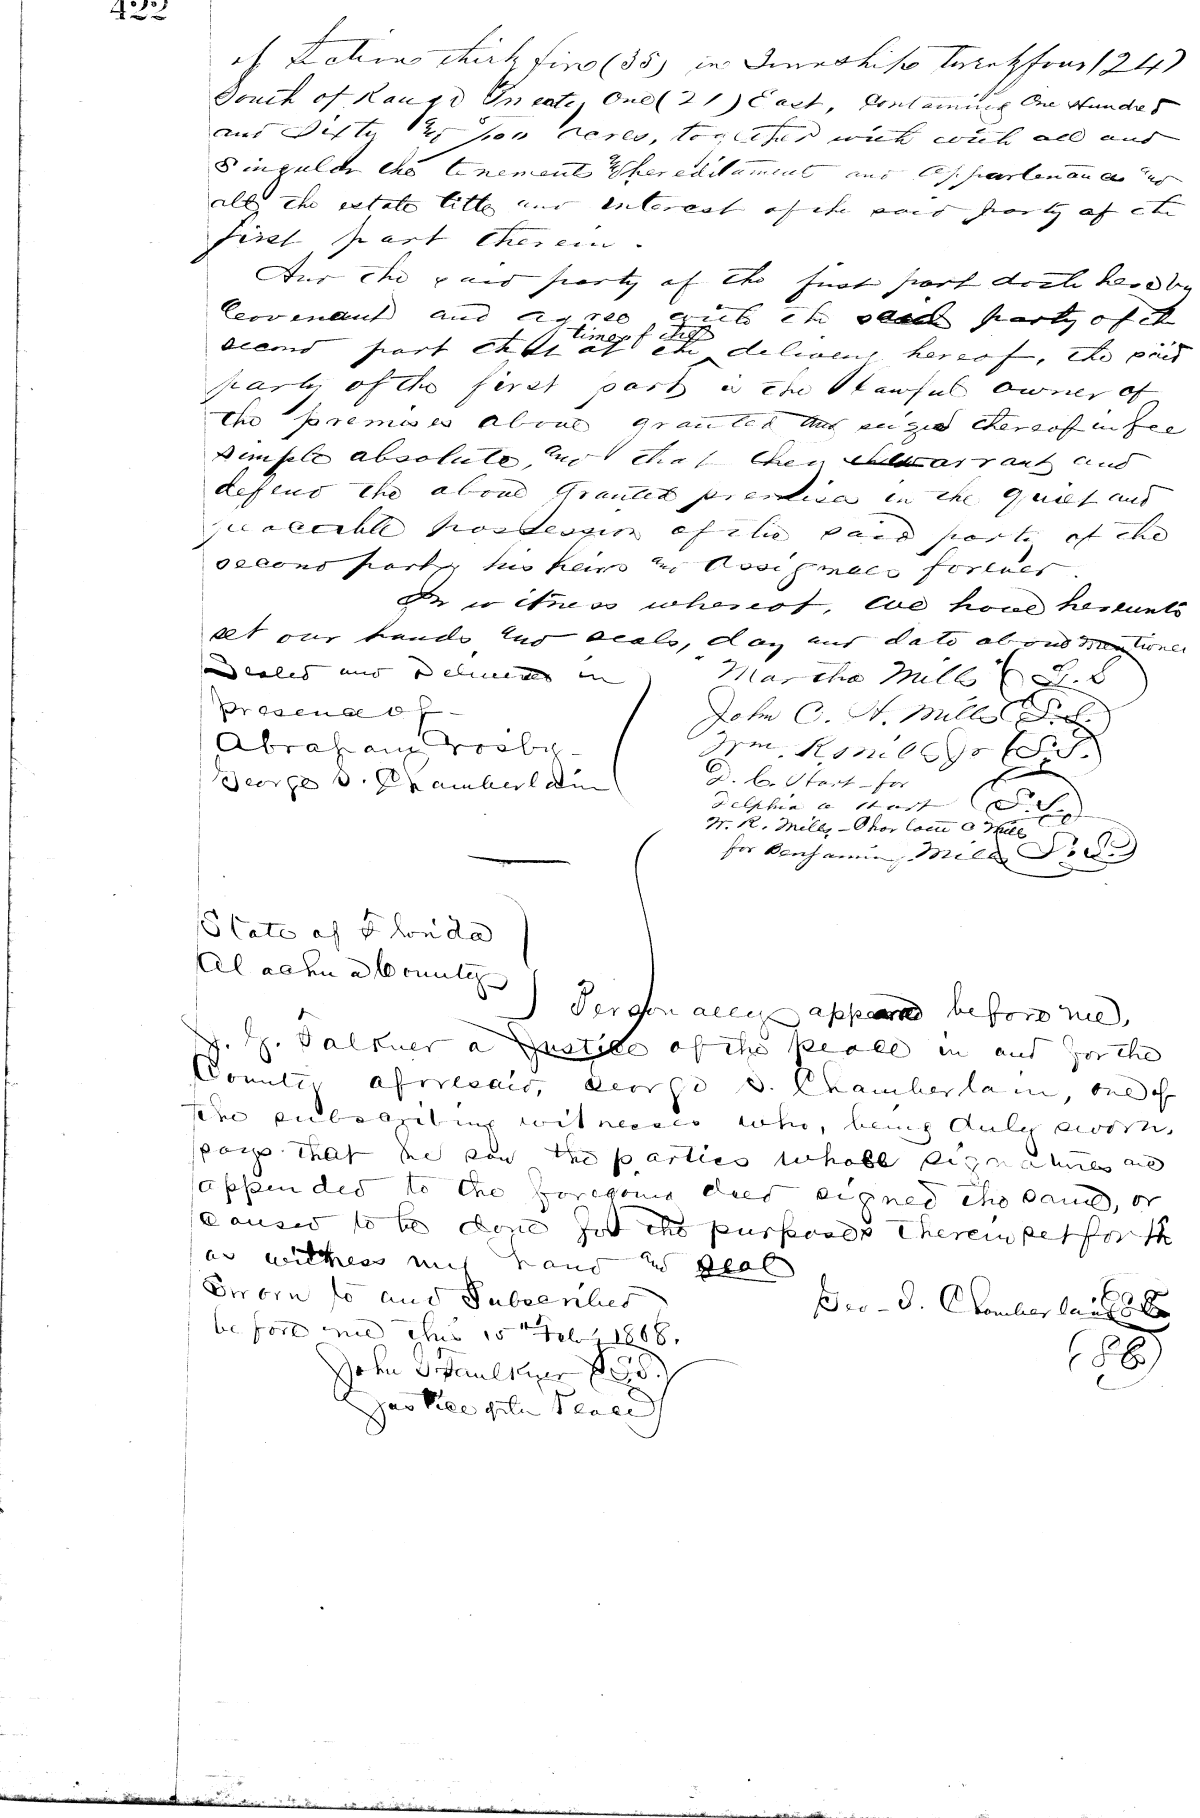 422
of Section thirty five (35) in Township Twenty four (24)
South of Range Twenty One (21) East, Containing One Hundred
and Sixty acres, together with with all and
Singular the tenements & hereditaments and appartenances and
all the estate title and interest of the said party of the
first part therein.
And the said party of the first part doth hereby
Covenant and agree with the said party of the
second part that at the time of the delivery hereof, the said
party of the first part is the lawful owner of
the premises above granted and seized thereof in fee
simple absolute, and that they warrant and
defend the above granted premises in the quiet and
peaceable possession of the said party of the
second party his heirs and assignees forever.
In witness whereof, we have hereunto
set our hands and seals, day and date above mentioned
Sealed and Delivered in
presence of
Abraham Crosby
George S. Chamberlain
Martha Mills (L.S.
John C. H. Mills (L.S.)
Wm. R. (L.S.)
D. C. Start for
Delphia a Start (L.S.)
W. R. Mills - C Mills
for Benjamin Mills (L.S.)
State of Florida
Alachua County
Personally appeared before me,
J. G. Falkner a Justice of the Peace in and for the
County aforesaid, George S. Chamberlain, one of
the subscribing witnesses who, being duly sworn,
says that he saw the parties whose signatures are
appended to the foregoing deed signed the same, or
caused to be done for the purposes therein set forth
as witness my hand and seal
Sworn to and Subscribed
before me this 15th Feby 1868.
Geo. S. Chamberlain
John G Faulkner (L.S.)
Justice of the Peace